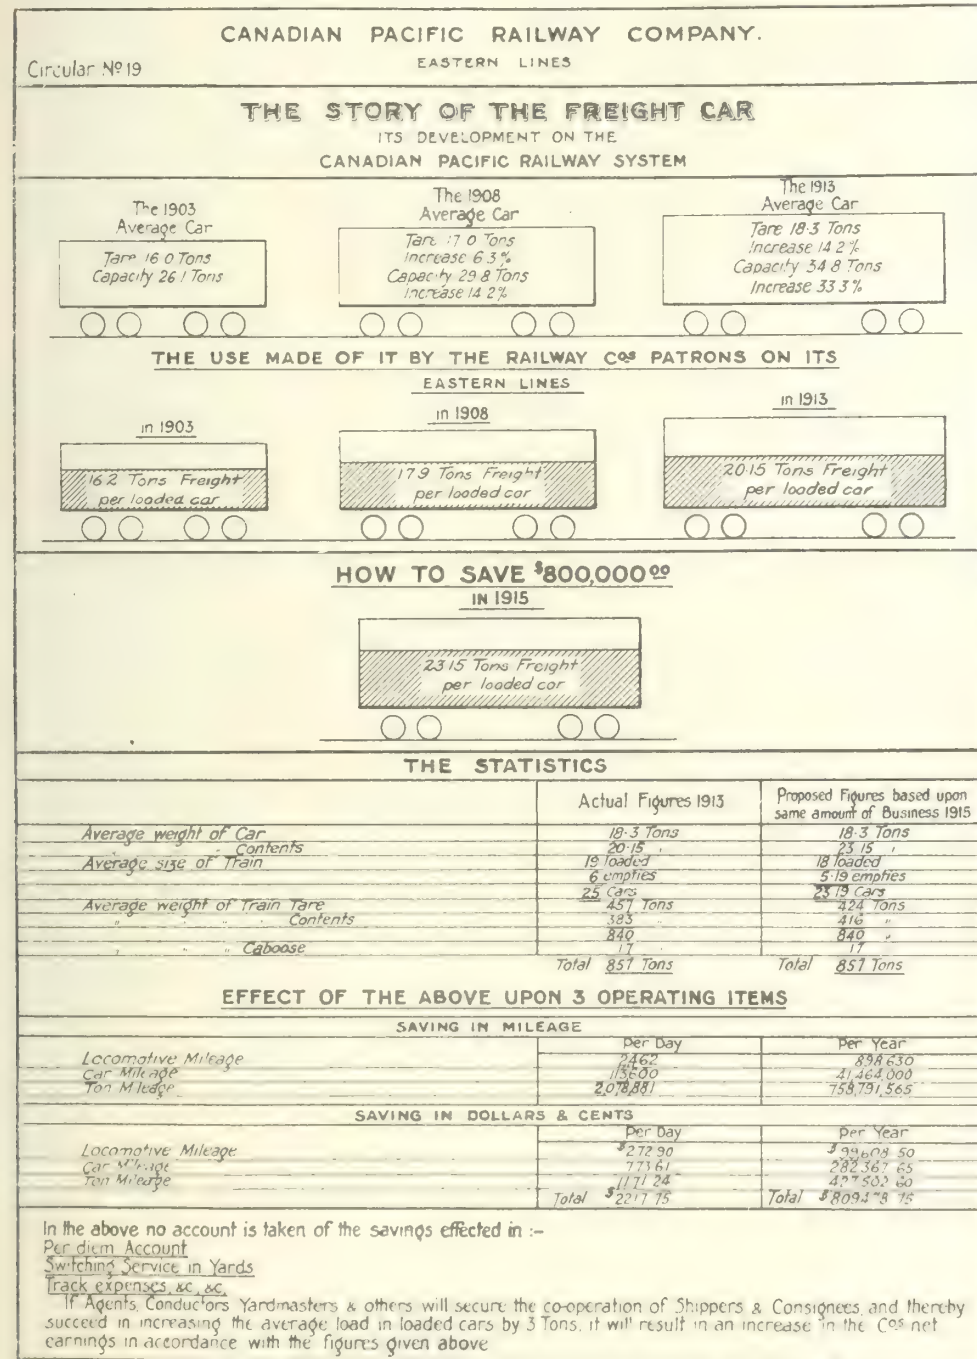 CANADIAN PACIFIC RAILWAY COMPANY.
EASTERN LINES
Circular Nº 19
THE STORY OF THE FREIGHT CAR
ITS DEVELOPMENT ON THE
CANADIAN PACIFIC RAILWAY SYSTEM
The 1903
Average Car
Tare 16.0 Tons
Capacity 26.1 Tons
The 1908
Average Car
Tare 17.0 Tons
Increase 6.3%
Capacity 29.8 Tons
Increase 14.2%
The 1913
Average Car
Tare 18.3 Tons
Increase 14.2%
Capacity 34.8 Tons
Increase 33.3%
THE USE MADE OF IT BY THE RAILWAY Cos PATRONS ON ITS
EASTERN LINES
in 1903
16.2 Tons Freight
per loaded car
in 1908
17.9 Tons Freight
per loaded car
in 1913
20.15 Tons Freight
per loaded car
HOW TO SAVE $800,000.00
IN 1915
23.15 Tons Freight
per loaded car
THE STATISTICS
Actual Figures 1913
Proposed Figures based upon
same amount of Business 1915
Average weight of Car 18.3 Tons 18.3 Tons
" " Contents 20.15 " 23.15 "
Average size of Train 19 loaded 18 loaded
6 empties 5.19 empties
25 Cars 23.19 Cars
Average weight of Train Tare 457 Tons 424 Tons
" " " Contents 383 " 416 "
840 840 "
" " " Caboose 17 " 17
Total 857 Tons Total 857 Tons
EFFECT OF THE ABOVE UPON 3 OPERATING ITEMS
SAVING IN MILEAGE
Per Day Per Year
Locomotive Mileage 2,462 898,630
Car Mileage 113,600 41,464,000
Ton Mileage 2,078,881 758,791,565
SAVING IN DOLLARS & CENTS
Per Day Per Year
Locomotive Mileage $272.90 $99608.50
Car Mileage 773.61 282,367.65
Ton Mileage 1171.24 427,502.60
Total $2217.75 Total $809478.75
In the above no account is taken of the savings effected in :–
Per diem Account
Switching Service in Yards
Track expenses, &c, &c,
If Agents, Conductors Yardmasters & others will secure the co-operation of Shippers & Consignees, and thereby
succeed in increasing the average load in loaded cars by 3 Tons, it will result in an increase in the Cos net
earnings in accordance with the figures given above